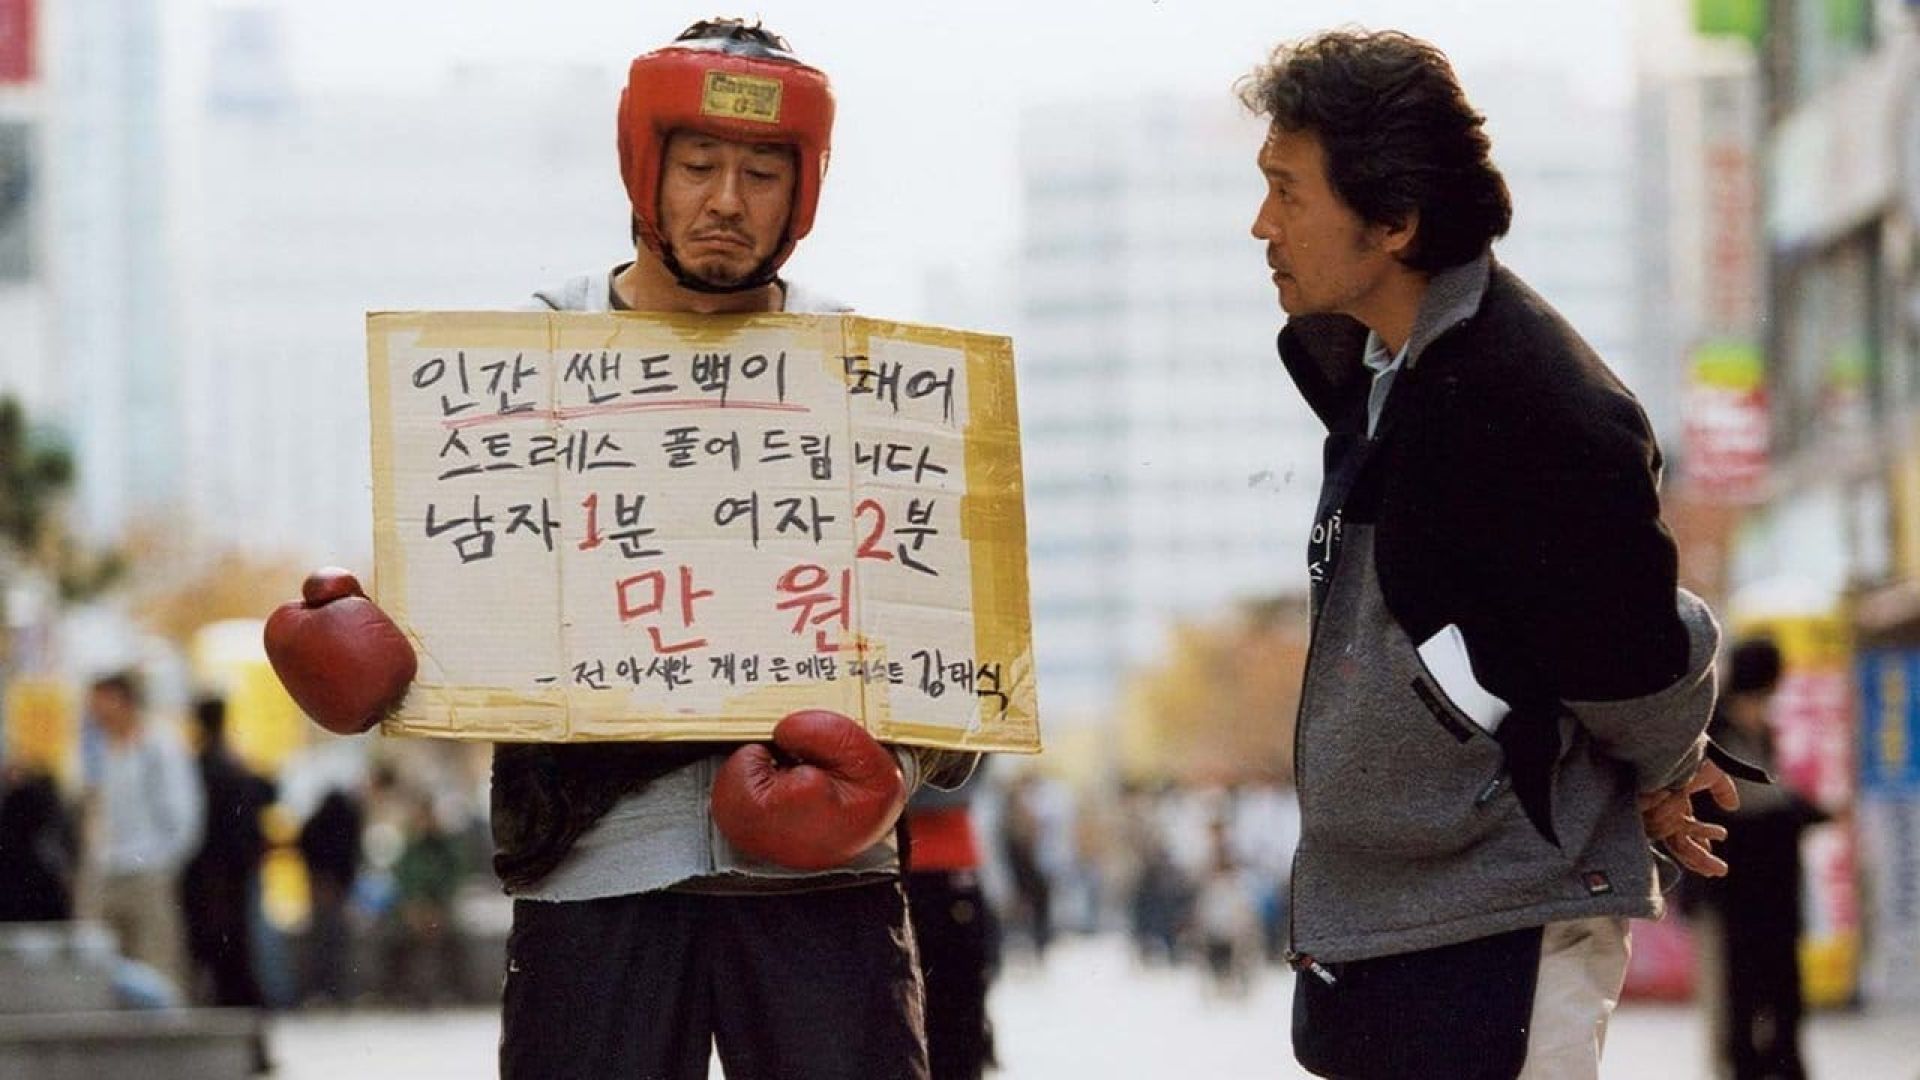 인간 쌘드백이 돼어
스트레스 풀어 드립니다.
남자 1분 여자 2분
만 원
- 전 아세안 게임 은메달 리스트 강태식